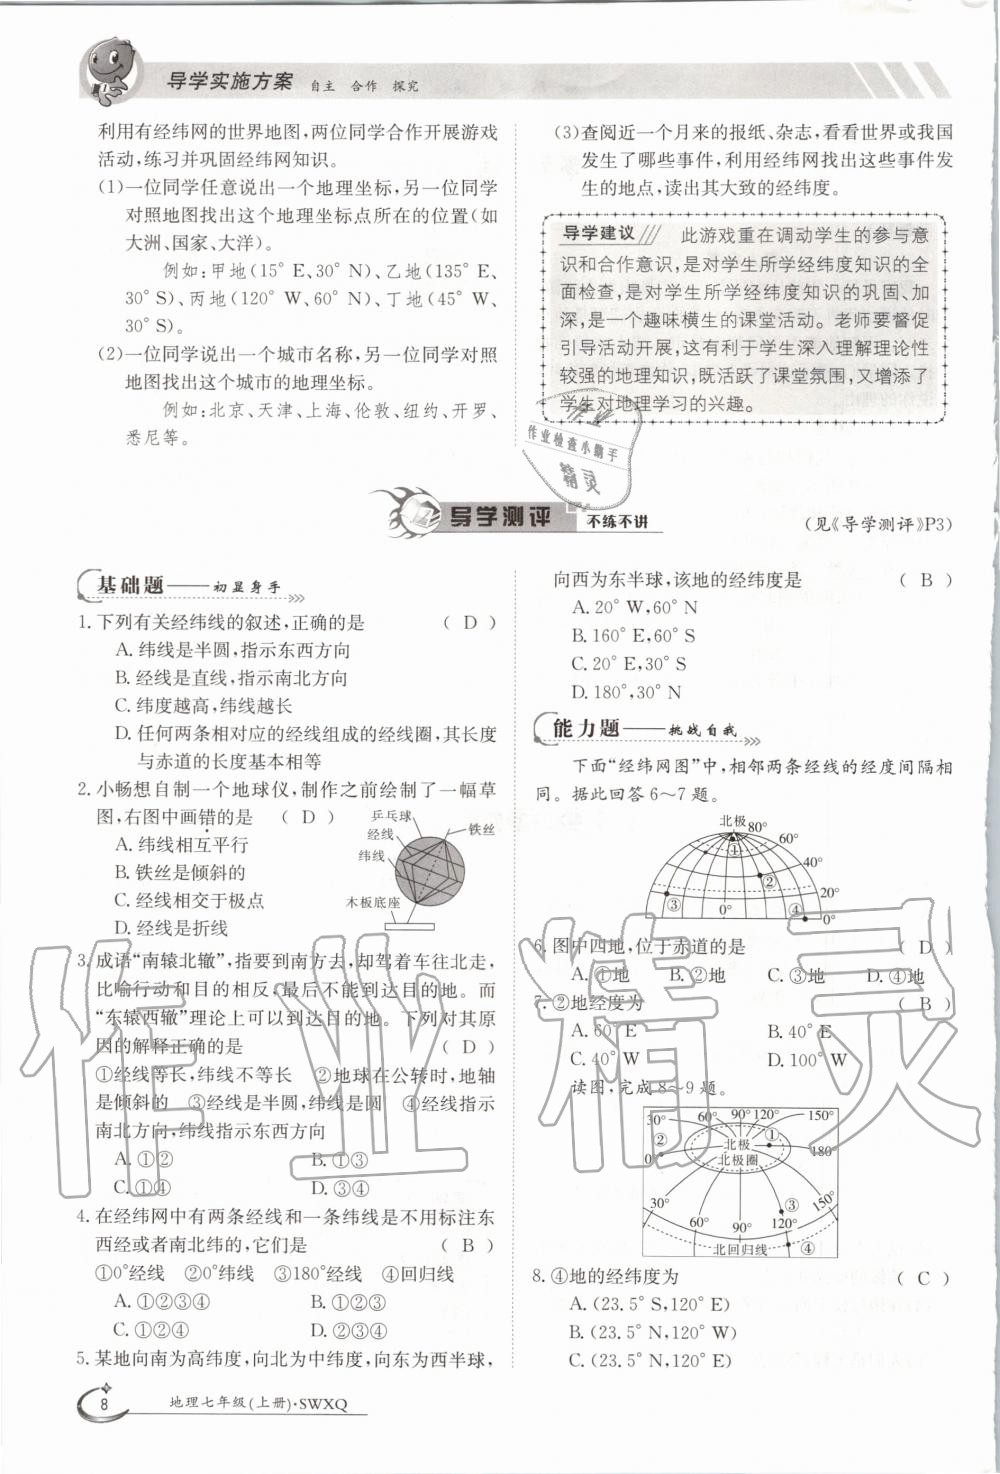 导学实施方案 自主 合作 探究
利用有经纬网的世界地图,两位同学合作开展游戏
活动,练习并巩固经纬网知识。
(1)一位同学任意说出一个地理坐标,另一位同学
对照地图找出这个地理坐标点所在的位置(如
大洲、国家、大洋)。
例如:甲地(15°E,30°N)、乙地(135°E,
30°S)、丙地(120°W,60°N)、丁地(45°W,
30°S)。
(2)一位同学说出一个城市名称,另一位同学对照
地图找出这个城市的地理坐标。
例如:北京、天津、上海、伦敦、纽约、开罗、
悉尼等。
(3)查阅近一个月来的报纸、杂志,看看世界或我国
发生了哪些事件,利用经纬网找出这些事件发
生的地点,读出其大致的经纬度。
导学建议 此游戏重在调动学生的参与意
识和合作意识,是对学生所学经纬度知识的全
面检查,是对学生所学经纬度知识的巩固、加
深,是一个趣味横生的课堂活动。老师要督促
引导活动开展,这有利于学生深入理解理论性
较强的地理知识,既活跃了课堂氛围,又增添了
学生对地理学习的兴趣。
作业
作业检查小助手
精灵
导学测评 不练不讲
(见《导学测评》P3)
基础题——初显身手
1.下列有关经纬线的叙述,正确的是 ( D )
A.纬线是半圆,指示东西方向
B.经线是直线,指示南北方向
C.纬度越高,纬线越长
D.任何两条相对应的经线组成的经线圈,其长度
与赤道的长度基本相等
2.小畅想自制一个地球仪,制作之前绘制了一幅草
图,右图中画错的是 ( D )
A.纬线相互平行
B.铁丝是倾斜的
C.经线相交于极点
D.经线是折线
乒乓球
经线
铁丝
纬线
木板底座
3.成语“南辕北辙”,指要到南方去,却驾着车往北走,
比喻行动和目的相反,最后不能到达目的地。而
“东辕西辙”理论上可以到达目的地。下列对其原
因的解释正确的是 ( D )
①经线等长,纬线不等长 ②地球在公转时,地轴
是倾斜的 ③经线是半圆,纬线是圆 ④经线指示
南北方向,纬线指示东西方向
A.①② B.①③
C.①④ D.③④
4.在经纬网中有两条经线和一条纬线是不用标注东
西经或者南北纬的,它们是 ( B )
①0°经线 ②0°纬线 ③180°经线 ④回归线
A.①②③④ B.①②③
C.①②④ D.②③④
5.某地向南为高纬度,向北为中纬度,向东为西半球,
向西为东半球,该地的经纬度是 ( B )
A.20°W,60°N
B.160°E,60°S
C.20°E,30°S
D.180°,30°N
能力题——挑战自我
下面“经纬网图”中,相邻两条经线的经度间隔相
同。据此回答6～7题。
北极 80°
60°
①
40°
②
20°
③ 0° ④ 0°
6.图中四地,位于赤道的是 ( D )
A.①地 B.②地 C.③地 D.④地
7.②地经度为 ( B )
A.60°E B.40°E
C.40°W D.100°W
读图,完成8～9题。
30° 60° 90° 120° 150°
② 北极 ①
0° 北极圈 180°
30° ③ 150°
60° 90° 120°
北回归线 ④
8.④地的经纬度为 ( C )
A.(23.5°S,120°E)
B.(23.5°N,120°W)
C.(23.5°N,120°E)
8 地理七年级(上册)·SWXQ
作业精灵